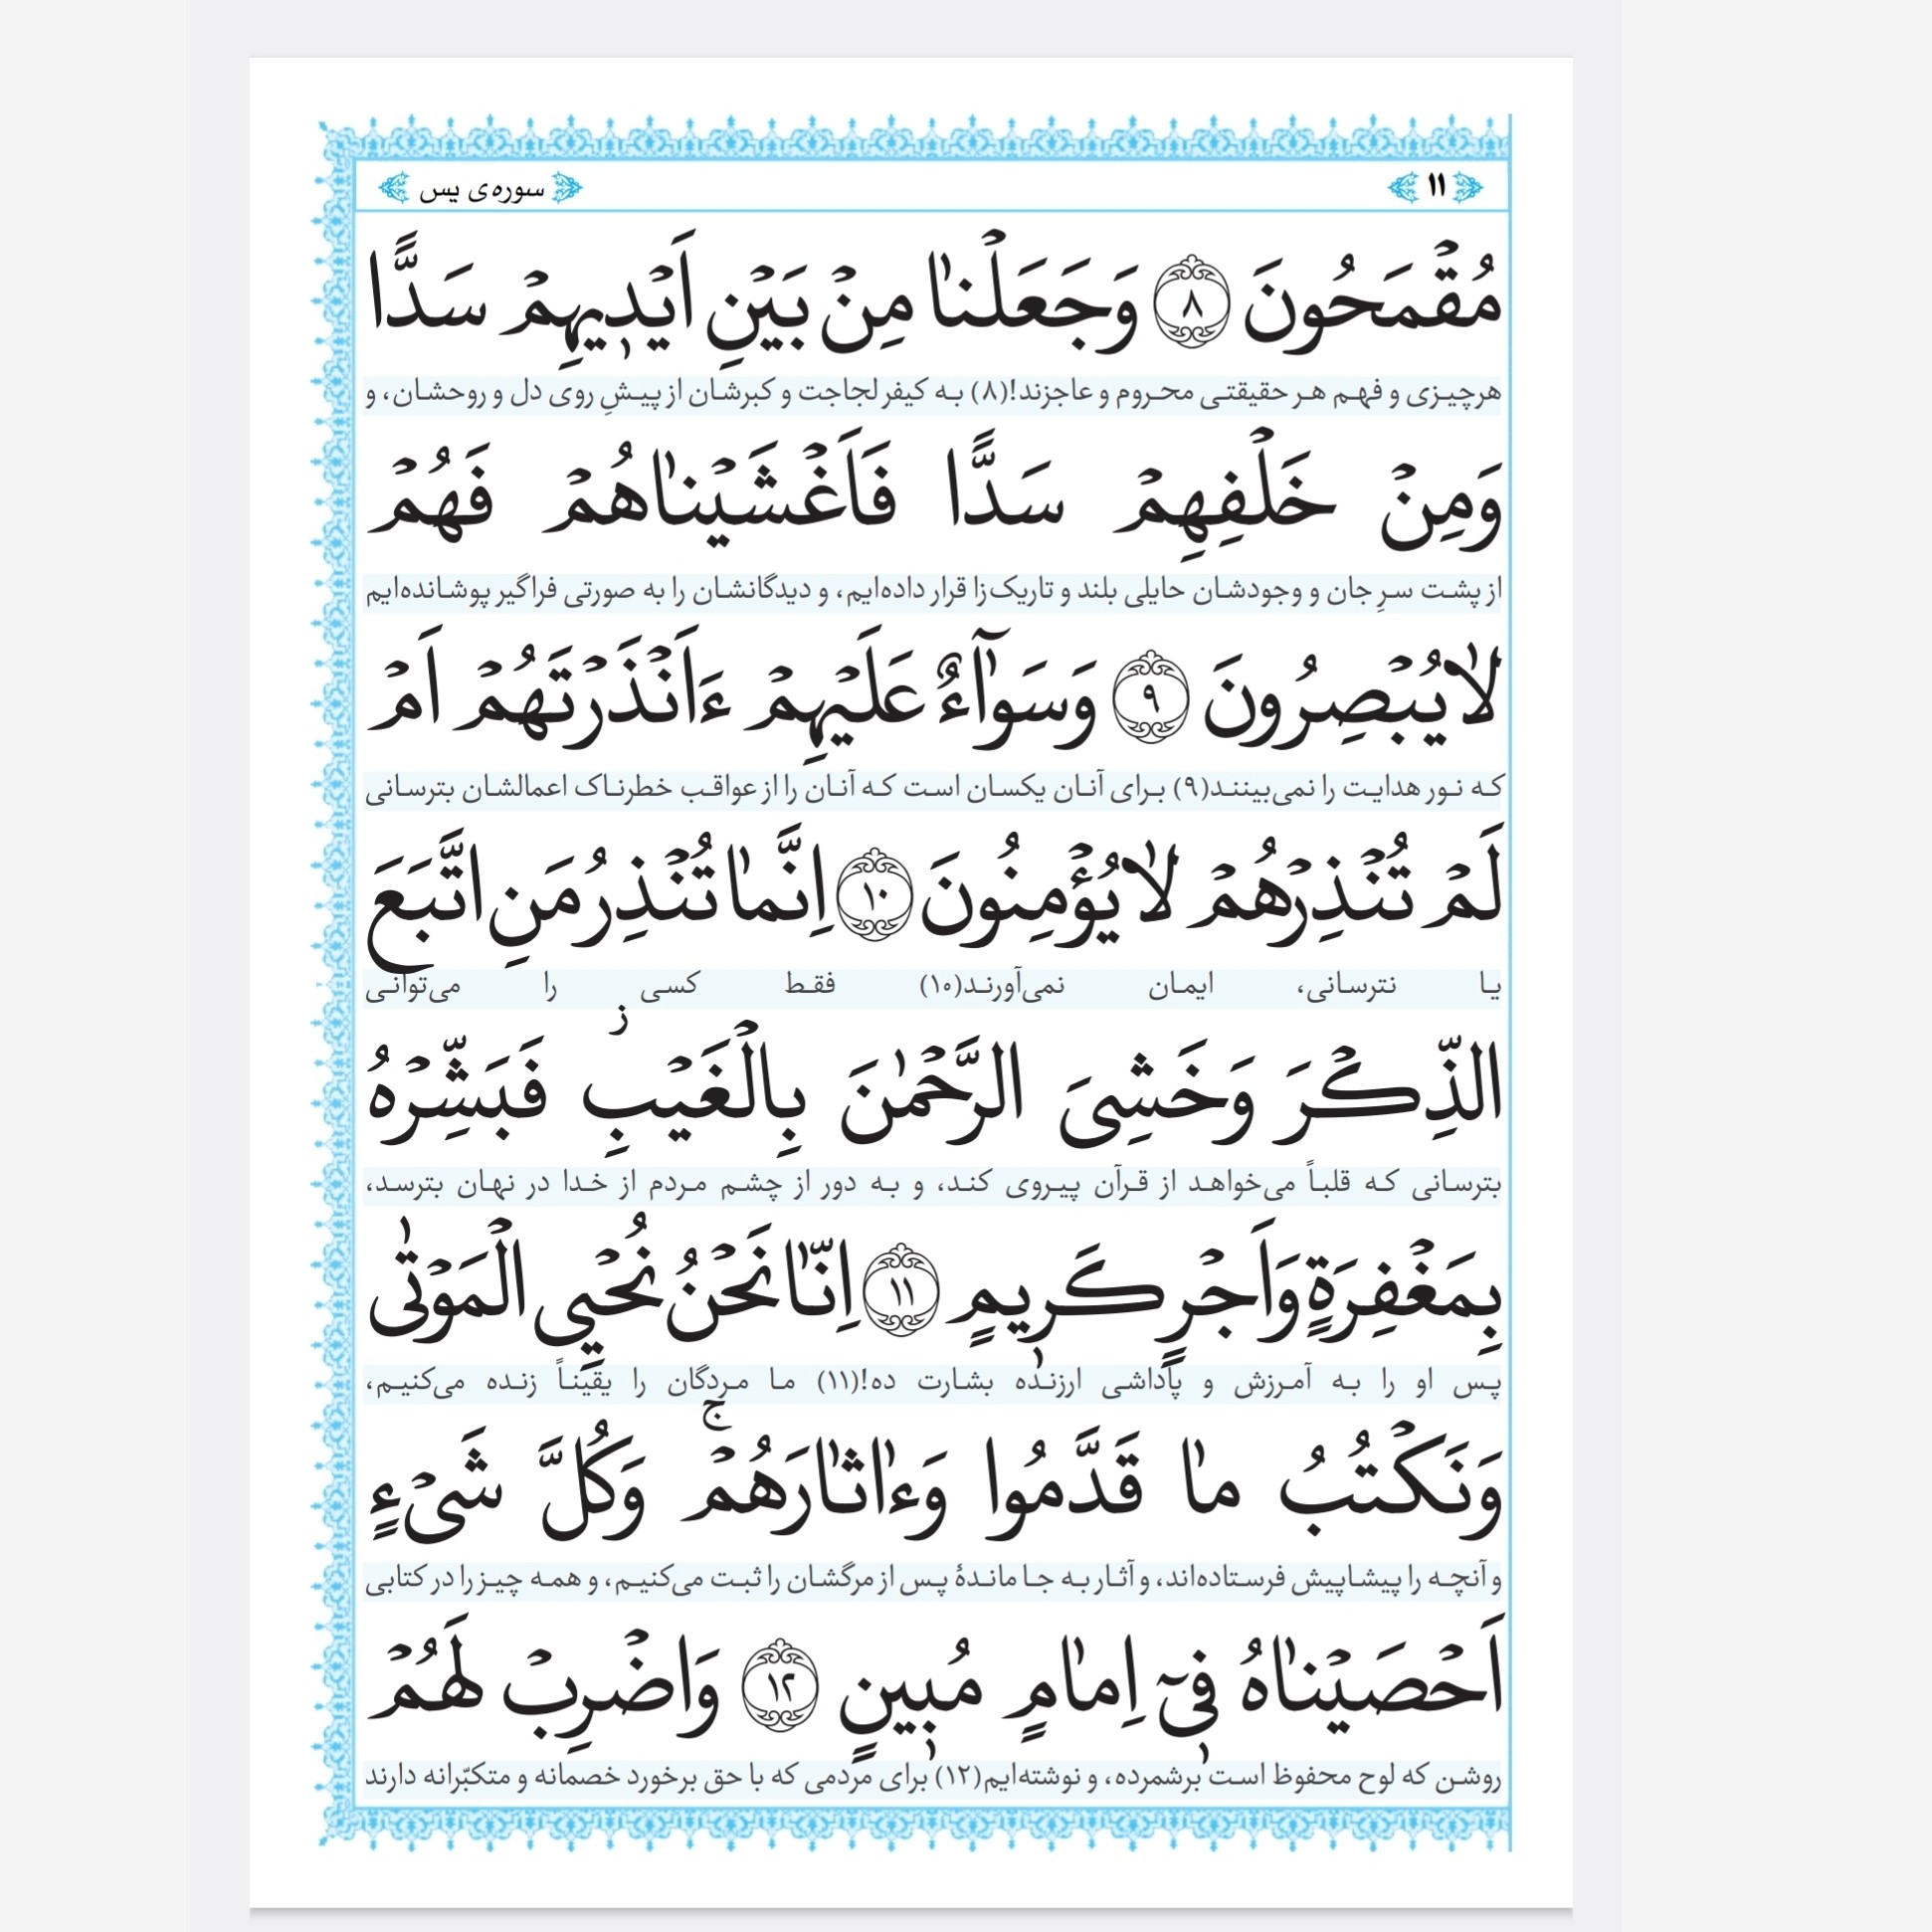 ۱۱ سوره‌ی یس
مُقْمَحُونَ ﴿۸﴾ وَجَعَلْنٰا مِنْ بَيْنِ اَيْدٖيهِمْ سَدًّا
هرچیزی و فهم هر حقیقتی محروم و عاجزند!(۸) به کیفر لجاجت و کبرشان از پیشِ روی دل و روحشان، و
وَمِنْ خَلْفِهِمْ سَدًّا فَاَغْشَيْنٰاهُمْ فَهُمْ
از پشت سرِ جان و وجودشان حایلی بلند و تاریک‌زا قرار داده‌ایم، و دیدگانشان را به صورتی فراگیر پوشانده‌ایم
لٰايُبْصِرُونَ ﴿۹﴾ وَسَوٰٓاءٌ عَلَيْهِمْ ءَاَنْذَرْتَهُمْ اَمْ
که نور هدایت را نمی‌بینند(۹) برای آنان یکسان است که آنان را از عواقب خطرناک اعمالشان بترسانی
لَمْ تُنْذِرْهُمْ لٰايُؤْمِنُونَ ﴿۱۰﴾ اِنَّمٰا تُنْذِرُ مَنِ اتَّبَعَ
یا نترسانی، ایمان نمی‌آورند(۱۰) فقط کسی را می‌توانی
الذِّكْرَ وَخَشِىَ الرَّحْمٰنَ بِالْغَيْبِ ز فَبَشِّرْهُ
بترسانی که قلباً می‌خواهد از قرآن پیروی کند، و به دور از چشم مردم از خدا در نهان بترسد،
بِمَغْفِرَةٍ وَاَجْرٍ كَرٖيمٍ ﴿۱۱﴾ اِنّٰا نَحْنُ نُحْيِي الْمَوْتٰى
پس او را به آمرزش و پاداشی ارزنده بشارت ده!(۱۱) ما مردگان را یقیناً زنده می‌کنیم،
وَنَكْتُبُ مٰا قَدَّمُوا وَءٰاثٰارَهُمْ ۚ وَكُلَّ شَىْءٍ
و آنچه را پیشاپیش فرستاده‌اند، و آثار به جا ماندهٔ پس از مرگشان را ثبت می‌کنیم، و همه چیز را در کتابی
اَحْصَيْنٰاهُ فٖىٓ اِمٰامٍ مُبٖينٍ ﴿۱۲﴾ وَاضْرِبْ لَهُمْ
روشن که لوح محفوظ است برشمرده، و نوشته‌ایم(۱۲) برای مردمی که با حق برخورد خصمانه و متکبّرانه دارند